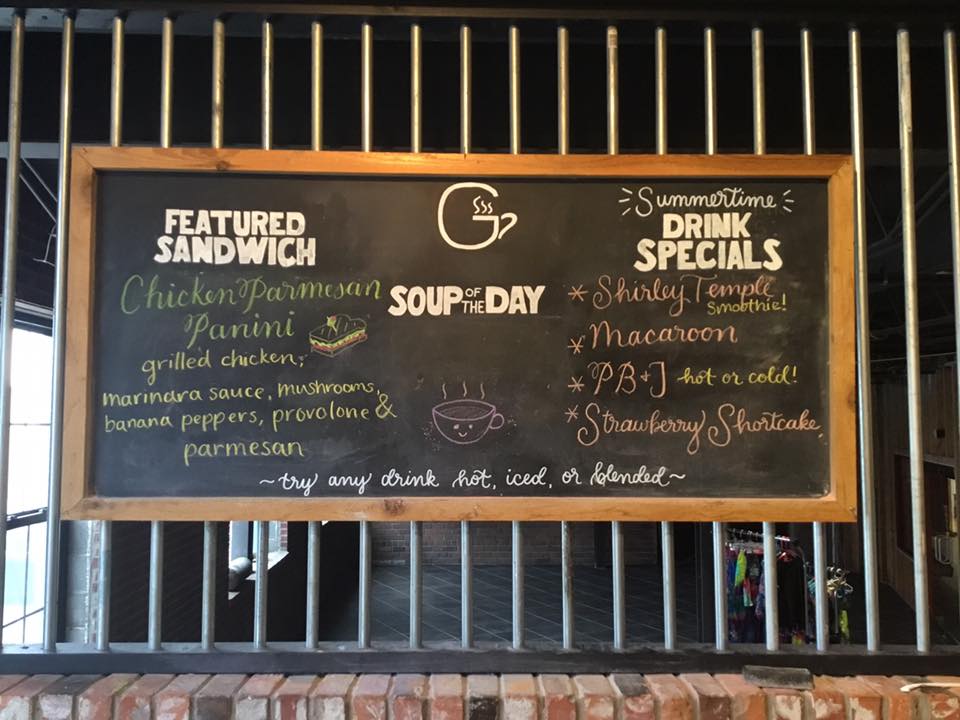 FEATURED
SANDWICH
Chicken Parmesan
Panini
grilled chicken,
marindra sauce, mushrooms,
banana peppers, provolone &
parmesan
G
SOUP OF THE DAY
Summertime
DRINK
SPECIALS
* Shirley Temple
Smoothie!
* Macaroon
* PB+J hot or cold!
* Strawberry Shortcake
~try any drink hot, iced, or blended~